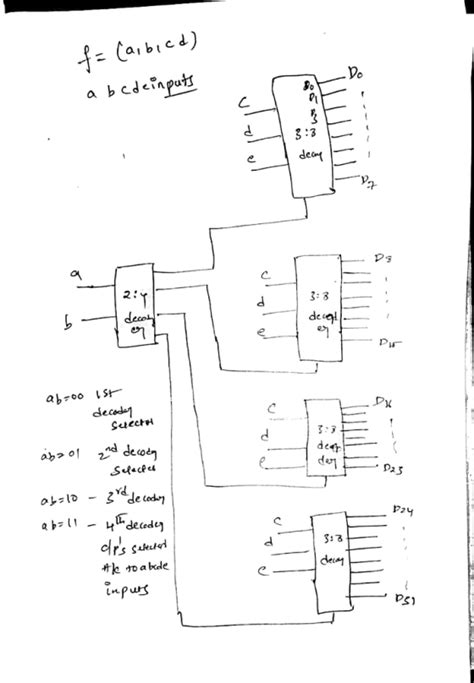 f = (a,b,c d)
a b c d e inputs
D0
D0
D1
c
d
3:8
e
D7
a
2:4
b
D8
c
d
3:8
e
D15
ab=00 1st
decoder
selected
ab=01 2nd decoder
selected
ab=10 - 3rd decoder
ab=11 - 4th decoder
o/p's selected
inputs
D16
c
d
3:8
e
D23
D24
c
d
3:8
e
D31